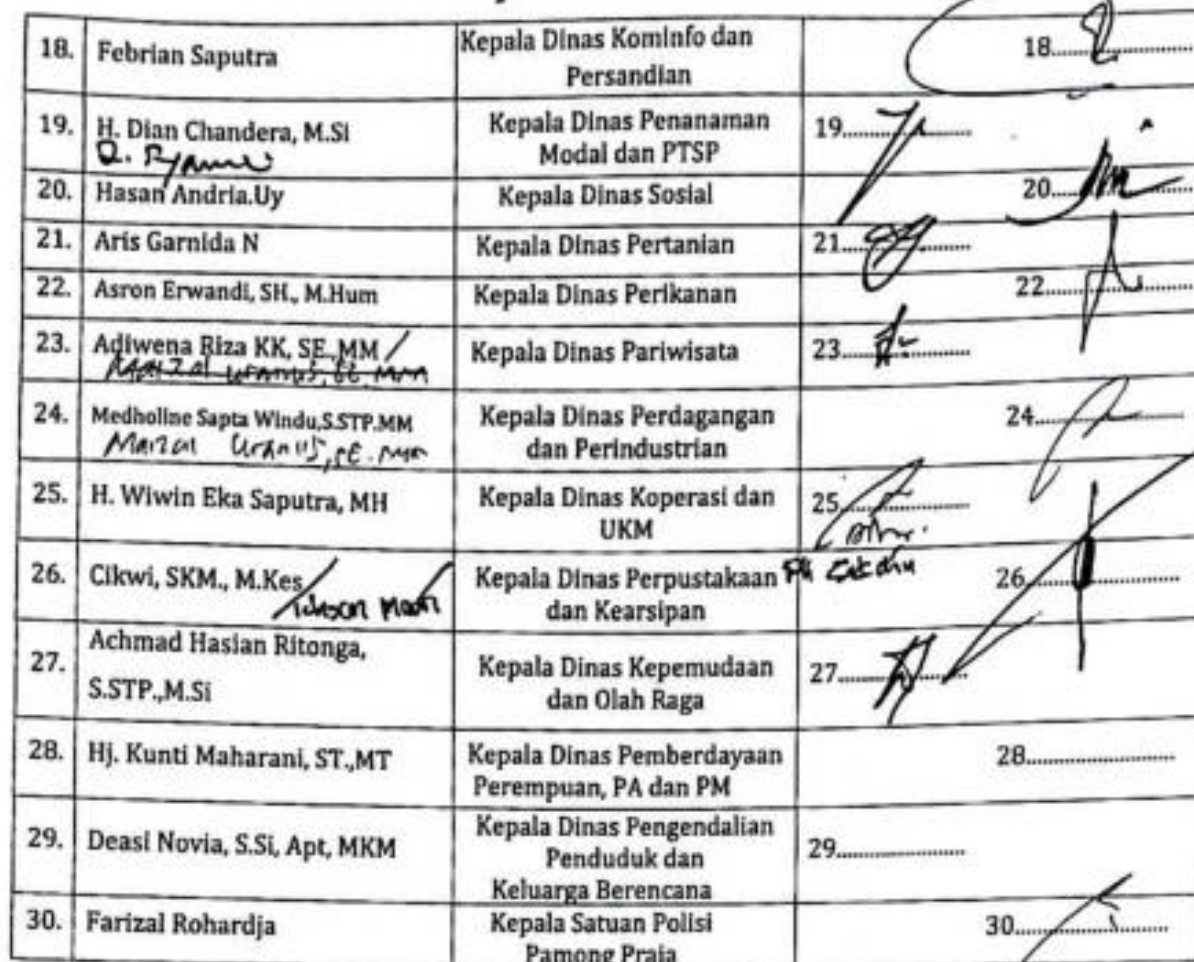 18. Febrian Saputra Kepala Dinas Kominfo dan 18
Persandian
19. H. Dian Chandera, M.Si Kepala Dinas Penanaman 19
Modal dan PTSP
20. Hasan Andria.Uy Kepala Dinas Sosial 20
21. Aris Garnida N Kepala Dinas Pertanian 21
22. Asron Erwandi, SH., M.Hum Kepala Dinas Perikanan 22
23. Adiwena Riza KK, SE.,MM / Kepala Dinas Pariwisata 23
24. Medholine Sapta Windu,S.STP.MM Kepala Dinas Perdagangan 24
Maizal Uranus, SE. MM dan Perindustrian
25. H. Wiwin Eka Saputra, MH Kepala Dinas Koperasi dan 25
UKM
26. Cikwi, SKM., M.Kes Kepala Dinas Perpustakaan 26
dan Kearsipan
27. Achmad Hasian Ritonga, Kepala Dinas Kepemudaan 27
S.STP.,M.Si dan Olah Raga
28. Hj. Kunti Maharani, ST.,MT Kepala Dinas Pemberdayaan 28
Perempuan, PA dan PM
29. Deasi Novia, S.Si, Apt, MKM Kepala Dinas Pengendalian 29
Penduduk dan
Keluarga Berencana
30. Farizal Rohardja Kepala Satuan Polisi 30
Pamong Praja